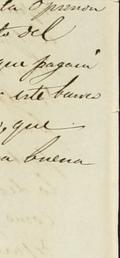 la Opinion
to del
que pagará
este banco
, que
a buena